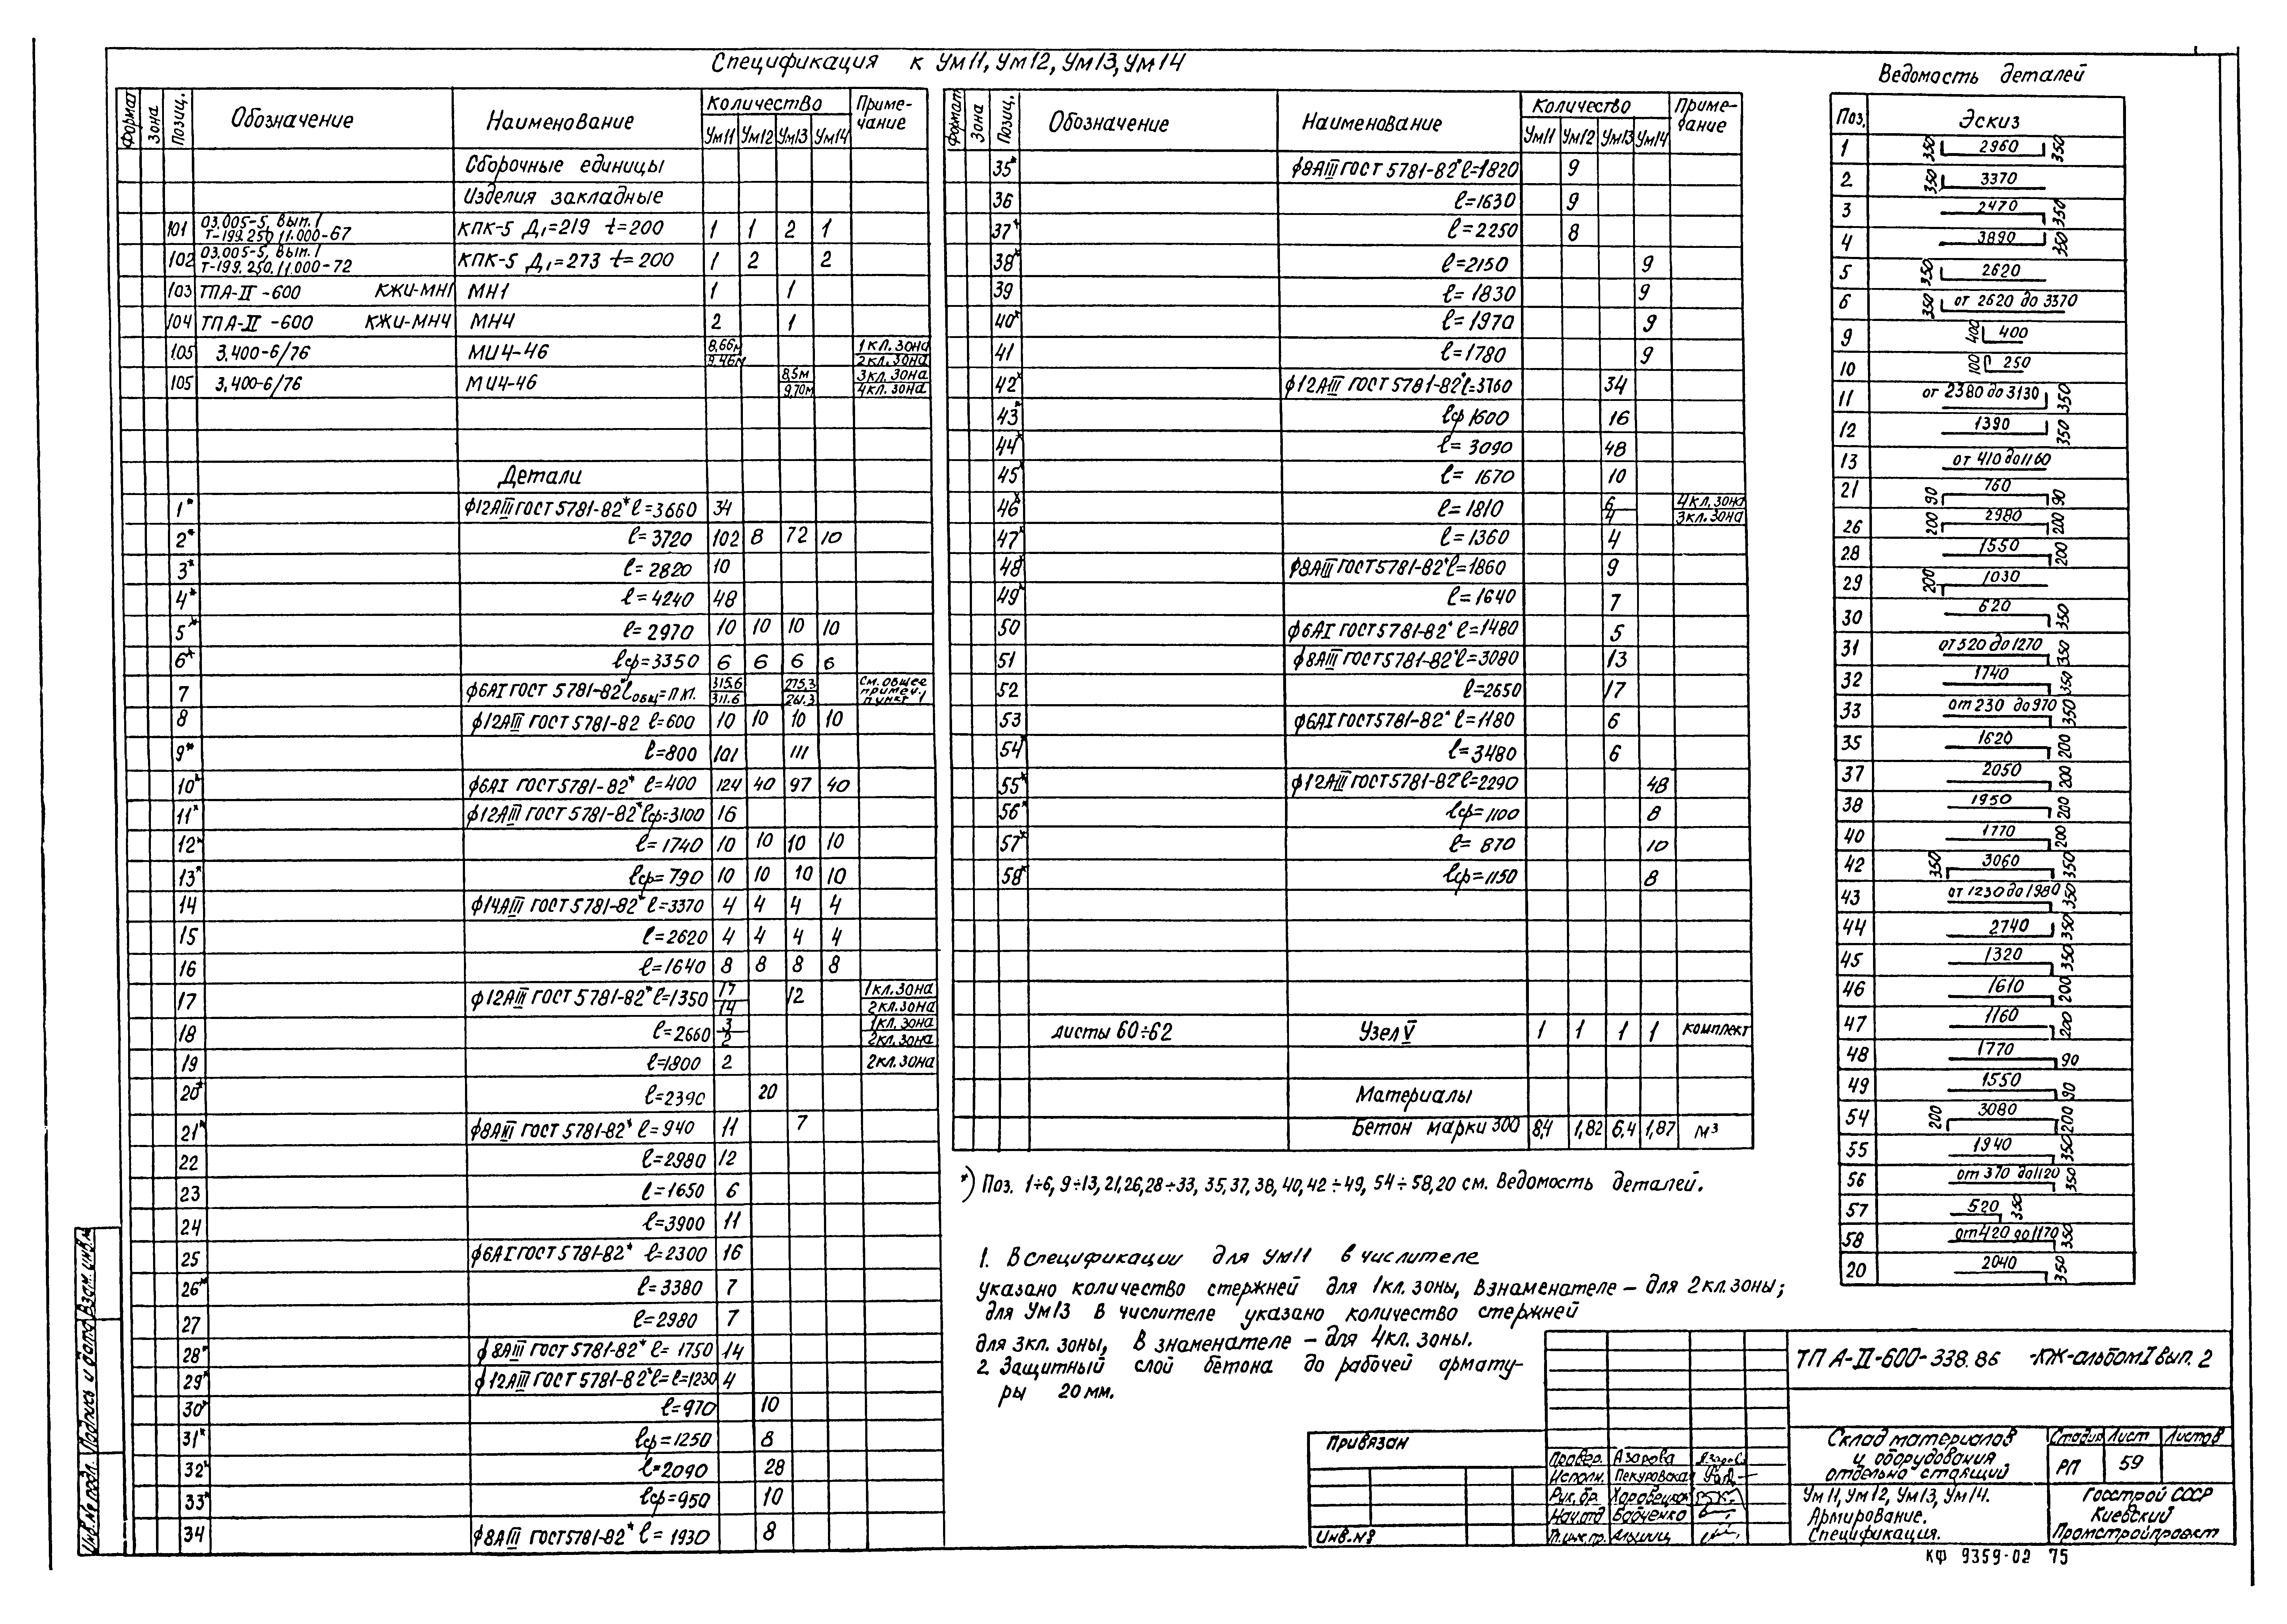 Спецификация к Ум11, Ум12, Ум13, Ум14
Формат Зона Позиц. Обозначение Наименование Количество Примечание
Ум11 Ум12 Ум13 Ум14
Сборочные единицы
Изделия закладные
101 03.005-5, Вып. 1 Т-199.250.11.000-67 КПК-5 Д₁=219 t=200 1 1 2 1
102 03.005-5, Вып. 1 Т-199.250.11.000-72 КПК-5 Д₁=273 t=200 1 2 2
103 ТПА-II-600 КЖИ-МН1 МН1 1 1
104 ТПА-II-600 КЖИ-МН4 МН4 2 1
105 3.400-6/76 МИ4-46 8,66м 9.46м 1кл. зона 2кл. зона
105 3.400-6/76 МИ4-46 8,5м 9,70м 3кл. зона 4кл. зона
Детали
1* ϕ12АIII ГОСТ 5781-82* ℓ=3660 34
2* ℓ=3720 102 8 72 10
3* ℓ=2820 10
4* ℓ=4240 48
5* ℓ=2970 10 10 10 10
6* ℓср=3350 6 6 6 6
7 ϕ6АI ГОСТ 5781-82* ℓобщ=п.м. 315.6 311.6 275.3 261.3 См. общее примеч. пункт 1
8 ϕ12АIII ГОСТ 5781-82 ℓ=600 10 10 10 10
9* ℓ=800 101 111
10* ϕ6АI ГОСТ 5781-82* ℓ=400 124 40 97 40
11* ϕ12АIII ГОСТ 5781-82* ℓср=3100 16
12* ℓ=1740 10 10 10 10
13* ℓср=790 10 10 10 10
14 ϕ14АIII ГОСТ 5781-82* ℓ=3370 4 4 4 4
15 ℓ=2620 4 4 4 4
16 ℓ=1640 8 8 8 8
17 ϕ12АIII ГОСТ 5781-82* ℓ=1350 17 14 12 1кл. зона 2кл. зона
18 ℓ=2660 3 2 1кл. зона 2кл. зона
19 ℓ=1800 2 2кл. зона
20* ℓ=2390 20
21* ϕ8АIII ГОСТ 5781-82* ℓ=940 11 7
22 ℓ=2980 12
23 ℓ=1650 6
24 ℓ=3900 11
25 ϕ6АI ГОСТ 5781-82* ℓ=2300 16
26* ℓ=3380 7
27 ℓ=2980 7
28* ϕ8АIII ГОСТ 5781-82* ℓ=1750 14
29* ϕ12АIII ГОСТ 5781-82* ℓ=ℓ=1230 4
30* ℓ=970 10
31* ℓср=1250 8
32* ℓ=2090 28
33* ℓср=950 10
34 ϕ8АIII ГОСТ 5781-82* ℓ=1930 8
Формат Зона Позиц. Обозначение Наименование Количество Примечание
Ум11 Ум12 Ум13 Ум14
35* ϕ8АIII ГОСТ 5781-82* ℓ=1820 9
36 ℓ=1630 9
37* ℓ=2250 8
38* ℓ=2150 9
39 ℓ=1830 9
40* ℓ=1970 9
41 ℓ=1780 9
42* ϕ12АIII ГОСТ 5781-82* ℓ=3760 34
43* ℓср 1600 16
44* ℓ=3090 48
45* ℓ=1670 10
46* ℓ=1810 6 4 4кл. зона 3кл. зона
47* ℓ=1360 4
48* ϕ8АIII ГОСТ 5781-82* ℓ=1860 9
49* ℓ=1640 7
50 ϕ6АI ГОСТ 5781-82* ℓ=1480 5
51 ϕ8АIII ГОСТ 5781-82* ℓ=3080 13
52 ℓ=2650 17
53 ϕ6АI ГОСТ 5781-82* ℓ=1180 6
54* ℓ=3480 6
55* ϕ12АIII ГОСТ 5781-82 ℓ=2290 48
56* ℓср=1100 8
57* ℓ=870 10
58* ℓср=1150 8
листы 60÷62 Узел V 1 1 1 1 комплект
Материалы
Бетон марки 300 8,4 1,82 6,4 1,87 м³
*) Поз. 1÷6, 9÷13, 21,26,28÷33, 35,37,38,40,42÷49, 54÷58,20 см. Ведомость деталей.
1. В спецификации для Ум11 в числителе
указано количество стержней для 1кл. зоны, в знаменателе – для 2кл. зоны;
для Ум13 в числителе указано количество стержней
для 3кл. зоны, в знаменателе – для 4кл. зоны.
2. Защитный слой бетона до рабочей армату-
ры 20 мм.
Ведомость деталей
Поз. Эскиз
1 350 2960 350
2 350 3370
3 2470 350
4 3890 350
5 350 2620
6 350 от 2620 до 3370
9 400 400
10 100 250
11 от 2380 до 3130 350
12 1390 350
13 от 410 до 1160
21 90 760 90
26 200 2980 200
28 1550 200
29 200 1030
30 620 350
31 от 520 до 1270 350
32 1740 350
33 от 230 до 970 350
35 1620 200
37 2050 200
38 1950 200
40 1770 200
42 350 3060 350
43 от 1230 до 1980 350
44 2740 350
45 1320 350
46 1610 200
47 1160 200
48 1770 90
49 1550 90
54 200 3080 200
55 1940 350
56 от 370 до 1120 350
57 520 350
58 от 420 до 1170 350
20 2040 350
ТП А-II-600-338.86 -КЖ-альбом I вып. 2
Привязан
Инв.№
Провер. Азарова
Исполн. Пекуровская
Рук. бр.
Нач. отд Бабченко
Гл.инж.пр.
Склад материалов
и оборудования
отдельно стоящий
Стадия Лист Листов
РП 59
Ум11, Ум12, Ум13, Ум14.
Армирование.
Спецификация.
Госстрой СССР
Киевский
Промстройпроект
КФ 9359-02 75
Инв.№ подл. Подпись и дата Взам. инв.№